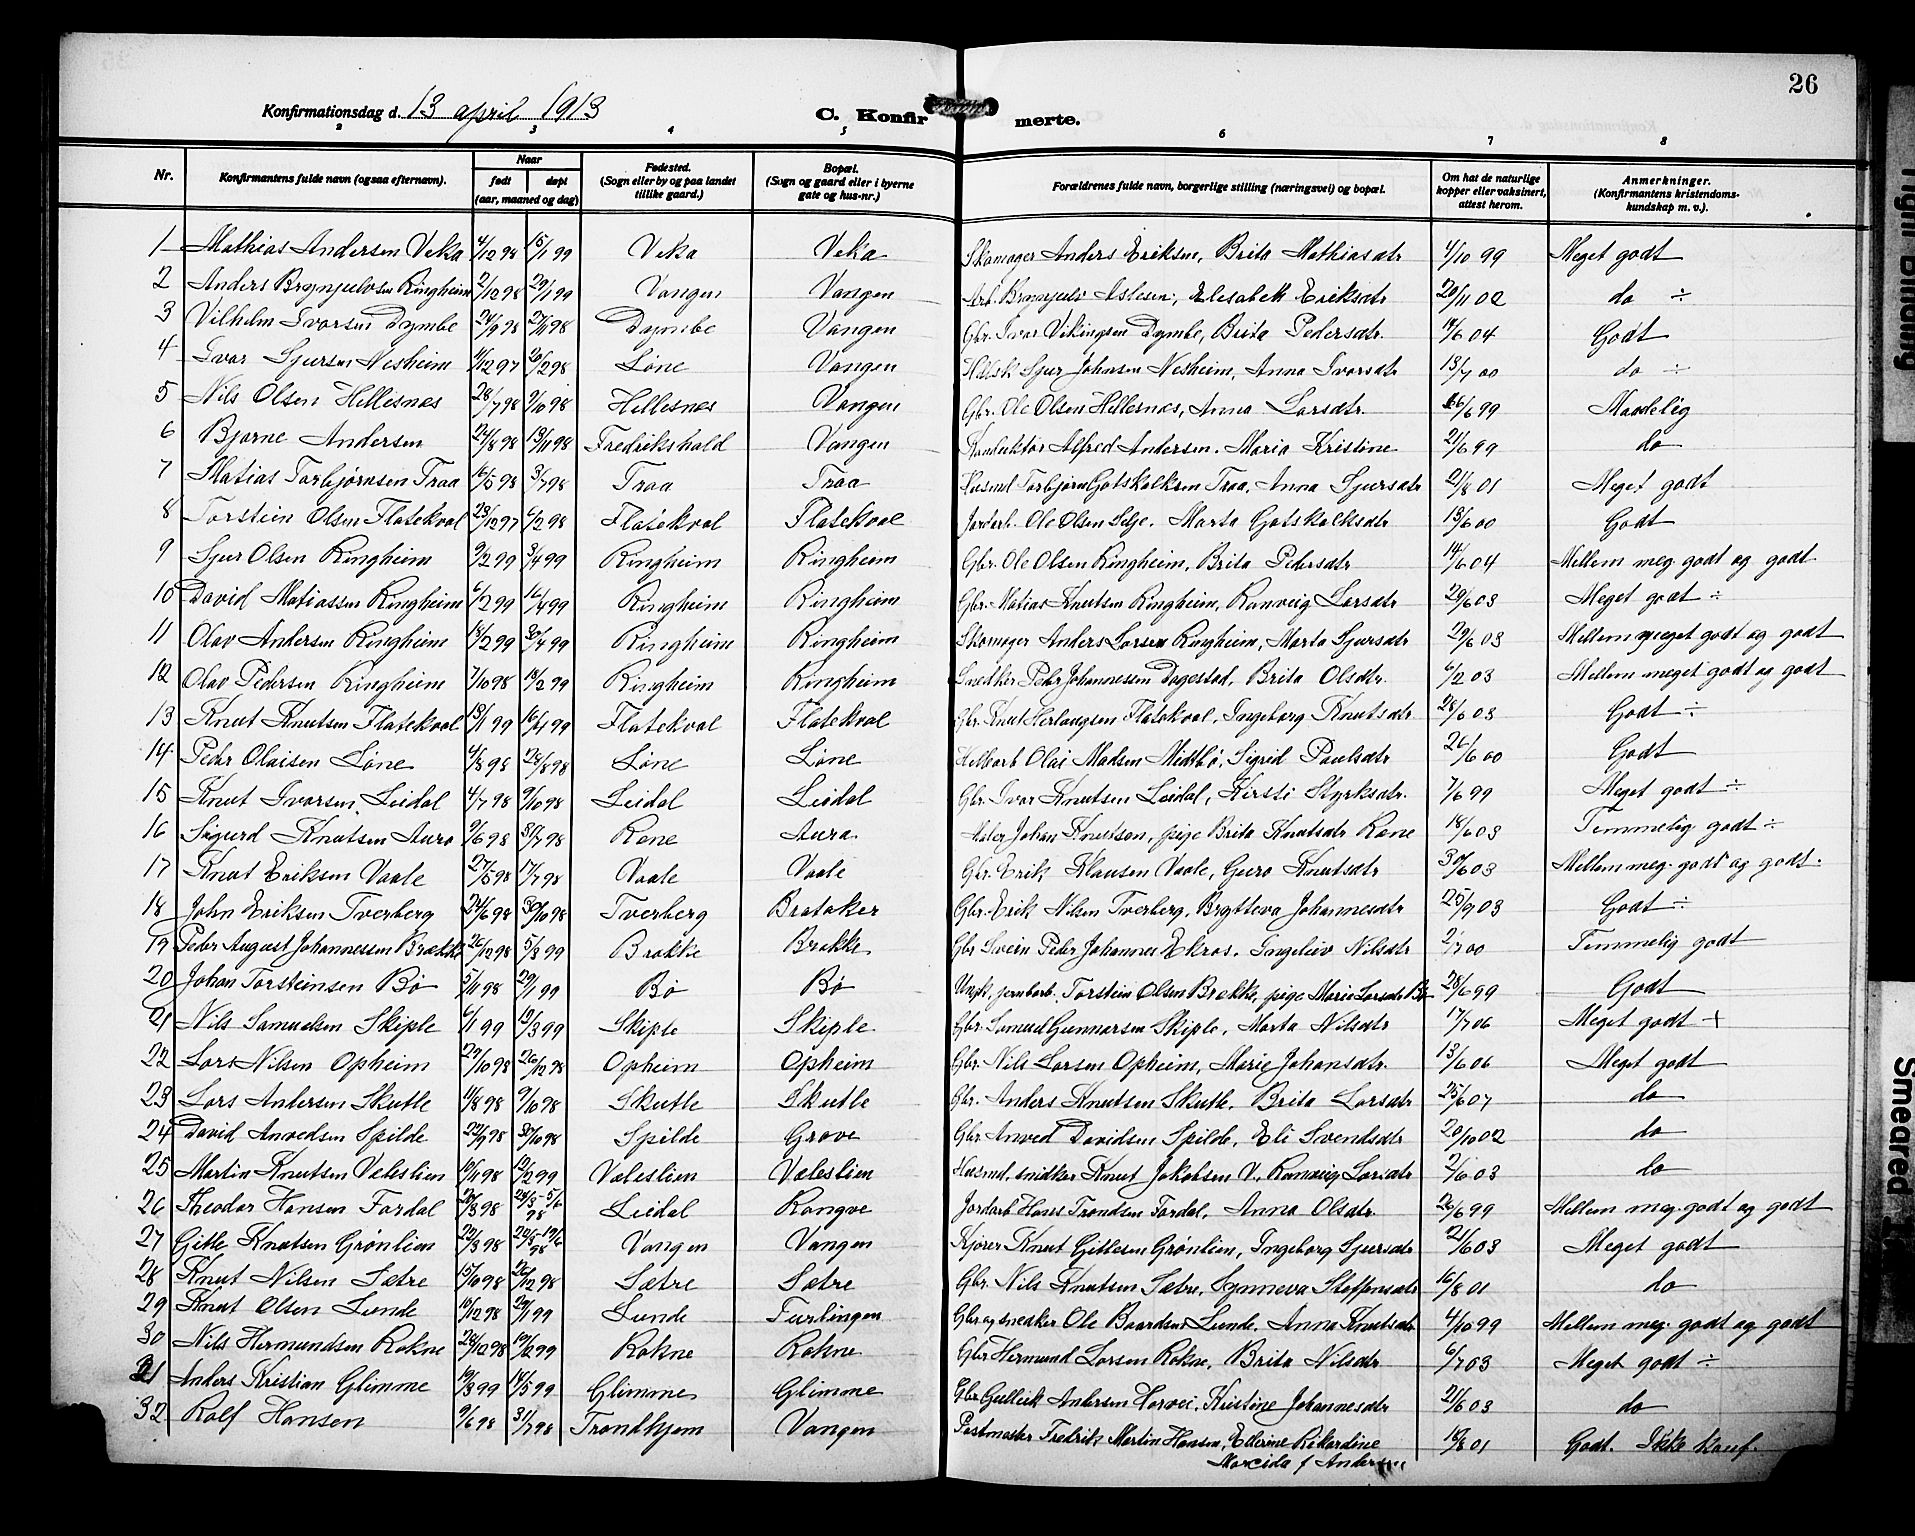 26
Konfirmationsdag d. 13 april 1913 C. Konfirmerte.
2 3 4 5 6 7 8
Nr. Konfirmantens fulde navn (ogsaa efternavn). Naar født døpt (aar, maaned og dag) Fødested. (Sogn eller by og paa landet tillike gaard.) Bopæl. (Sogn og gaard eller i byerne gate og hus-nr.) Forældrenes fulde navn, borgerlige stilling (næringsvei) og bopæl. Om hat de naturlige kopper eller vaksinert, attest herom. Anmerkninger. (Konfirmantens kristendoms-kundskap m. v.).
1 Mathias Andersen Veka 4/12 98 15/1 99 Veka Veka Skomager Anders Eriksen, Brita Mathiasdtr 4/10 99 Meget godt
2 Anders Brynjulvsen Ringheim 2/12 98 29/1 99 Vangen Vangen Arb. Brynjulv Aslesen, Elisabeth Eriksdtr 20/11 02 do ÷
3 Vilhelm Ivarsen Dymbe 24/9 98 27/11 98 Dymbe Vangen Gbr. Ivar Vikingsen Dymbe, Brita Pedersdtr. 14/6 04 Godt
4 Ivar Sjursen Nesheim 11/12 97 20/2 98 Lone Vangen Sjur Johnsen Nesheim, Anna Ivarsdtr 13/7 00 do ÷
5 Nils Olsen Hellesnes 28/7 98 9/10 98 Hellesnes Vangen Gbr. Ole Olsen Hellesnes, Anna Larsdtr. 26/6 99 Maadelig
6 Bjarne Andersen 24/8 98 13/11 98 Fredrikshald Vangen Konduktør Alfred Andersen, Maria Kristine 21/6 99 do
7 Matias Torbjørnsen Traa 16/5 98 3/7 98 Traa Traa Husmd Torbjørn Gotskalksen Traa, Anna Sjursdtr 21/8 01 Meget godt
8 Torstein Olsen Flatekval 23/12 97 6/2 98 Flatekval Flatekval Jordarb. Ole Olsen Selje, Marta Gotskalksdtr 13/6 00 Godt
9 Sjur Olsen Ringheim 9/2 99 3/4 99 Ringheim Ringheim Gbr. Ole Olsen Ringheim, Brita Pedersdtr 14/6 04 Mellem meg. godt og godt
10 David Matiassen Ringheim 6/2 99 16/4 99 Ringheim Ringheim Gbr. Matias Knutsen Ringheim, Ranveig Larsdtr 29/6 03 Meget godt ÷
11 Olav Andersen Ringheim 18/2 99 30/4 99 Ringheim Ringheim Skomager Anders Larsen Ringheim, Marta Sjursdtr 29/6 03 Mellem meget godt og godt
12 Olav Pedersen Ringheim 7/10 98 18/2 99 Ringheim Ringheim Snedker Peder Johannessen Dagestad, Brita Olsdtr. 6/2 03 Mellem meget godt og godt
13 Knut Knutsen Flatekval 13/1 99 16/4 99 Flatekval Flatekval Gbr. Knut Herlaugsen Flatekval, Ingeborg Knutsdtr 28/6 03 Godt ÷
14 Peder Olaisen Lone 4/8 98 28/8 98 Lone Lone Olai Madsen Midtbø, Sigrid Paulsdtr 26/6 00 Godt
15 Knut Ivarsen Leidal 4/7 98 9/10 98 Leidal Leidal Gbr. Ivar Knutsen Leidal, Kirsti Styrksdtr. 7/6 99 Meget godt ÷
16 Sigurd Knutsen Aura 9/6 98 31/7 98 Rene Aura Maler Johan Knutsen, pige Brita Knutsdtr Rene 18/6 03 Temmelig godt ÷
17 Knut Eriksen Vaale 27/5 98 17/7 98 Vaale Vaale Gbr. Erik Klausen Vaale, Guro Knutsdtr 30/6 03 Mellem meg. godt og godt.
18 John Eriksen Tverberg 24/6 98 30/10 98 Tverberg Brataker Gbr. Erik Nilsen Tverberg, Brytteva Johannesdtr 25/9 03 Godt ÷
19 Peder August Johannessen Brække 26/12 98 5/3 99 Brække Brække Gbr Svein Peder Johannes Ekras, Ingeleiv Nilsdtr 2/7 00 Temmelig godt
20 Johan Torsteinsen Bø 5/11 98 29/1 99 Bø Bø Ungk. jernbarb. Torstein Olsen Brekke, pige Marie Larsdtr Bø 28/6 99 Godt
21 Nils Samuelsen Skiple 6/1 99 19/3 99 Skiple Skiple Gbr. Samuel Gunnarsen Skiple, Marta Nilsdtr 17/7 06 Meget godt +
22 Lars Nilsen Opheim 27/10 98 26/12 98 Opheim Opheim Gbr. Nils Larsen Opheim, Marie Johansdtr. 13/6 06 Meget godt
23 Lars Andersen Skutle 11/8 98 9/10 98 Skutle Skutle Gbr. Anders Knutsen Skutle, Brita Larsdtr 25/6 07 do
24 David Anvedsen Spilde 22/9 98 30/10 98 Spilde Grove Gbr Anved Davidsen Spilde, Eli Svendsdtr 20/10 02 do
25 Martin Knutsen Væleslien 10/11 98 12/2 99 Væleslien Væleslien Husmd, snidker Knut Jakobsen V., Ranveig Larsdtr 2/6 03 do
26 Theodor Hansen Fordal 20/3 98 24/3 - 5/6 98 Leidal Rongve Jordarb Hans Trondsen Fordal, Anna Olsdtr. 26/6 99 Mellem meg. godt og godt
27 Gitle Knutsen Grønlien 22/3 98 22/5 - 19/6 98 Vangen Vangen Kjører Knut Gitlesen Grønlien, Ingeborg Sjursdtr 21/6 03 Meget godt
28 Knut Nilsen Sætre 15/10 98 26/12 98 Sætre Sætre Gbr. Nils Knutsen Sætre, Synneva Steffensdtr 16/8 01 do
29 Knut Olsen Lunde 10/12 98 29/1 99 Lunde Furlingen Gbr og snedker Ole Baardsen Lunde, Anna Knutsdtr 4/10 99 Mellem meg. godt og godt
30 Nils Hermundsen Rokne 28/12 98 19/2 99 Rokne Rokne Gbr Hermund Larsen Rokne, Brita Nilsdtr 6/7 03 Meget godt ÷
31 Anders Kristian Glimme 19/3 99 14/5 99 Glimme Glimme Gbr Gulleik Andersen Horvei, Kristine Johannesdtr 21/6 03 do
32 Rolf Hansen 9/6 98 31/7 98 Trondhjem Vangen Postmester Fredrik Martin Hansen, Ellerine Rikardine 18/8 01 Godt. Ikke konf.
Marcida f Andersen
High Binding
Smeared